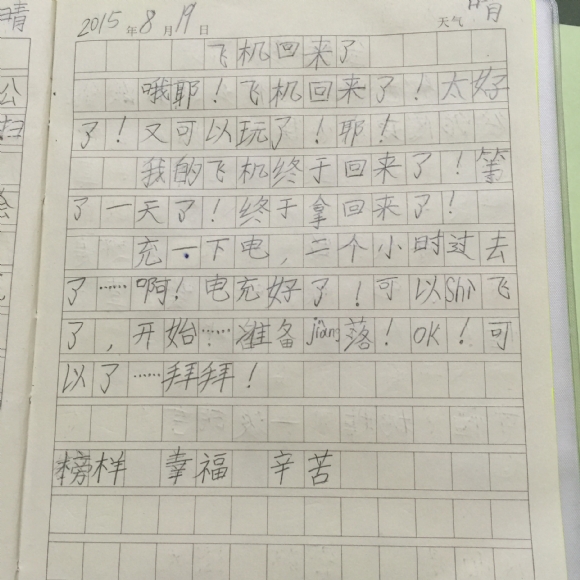 晴
2015年8月19日 天气 晴
飞机回来了
哦耶！飞机回来了！太好
了！又可以玩了！耶！
我的飞机终于回来了！等
了一天了！终于拿回来了！
充一下电，二个小时过去
了……啊！电充好了！可以shì飞
了，开始……准备jiàng落！OK！可
以了……拜拜！
榜样 幸福 辛苦
公